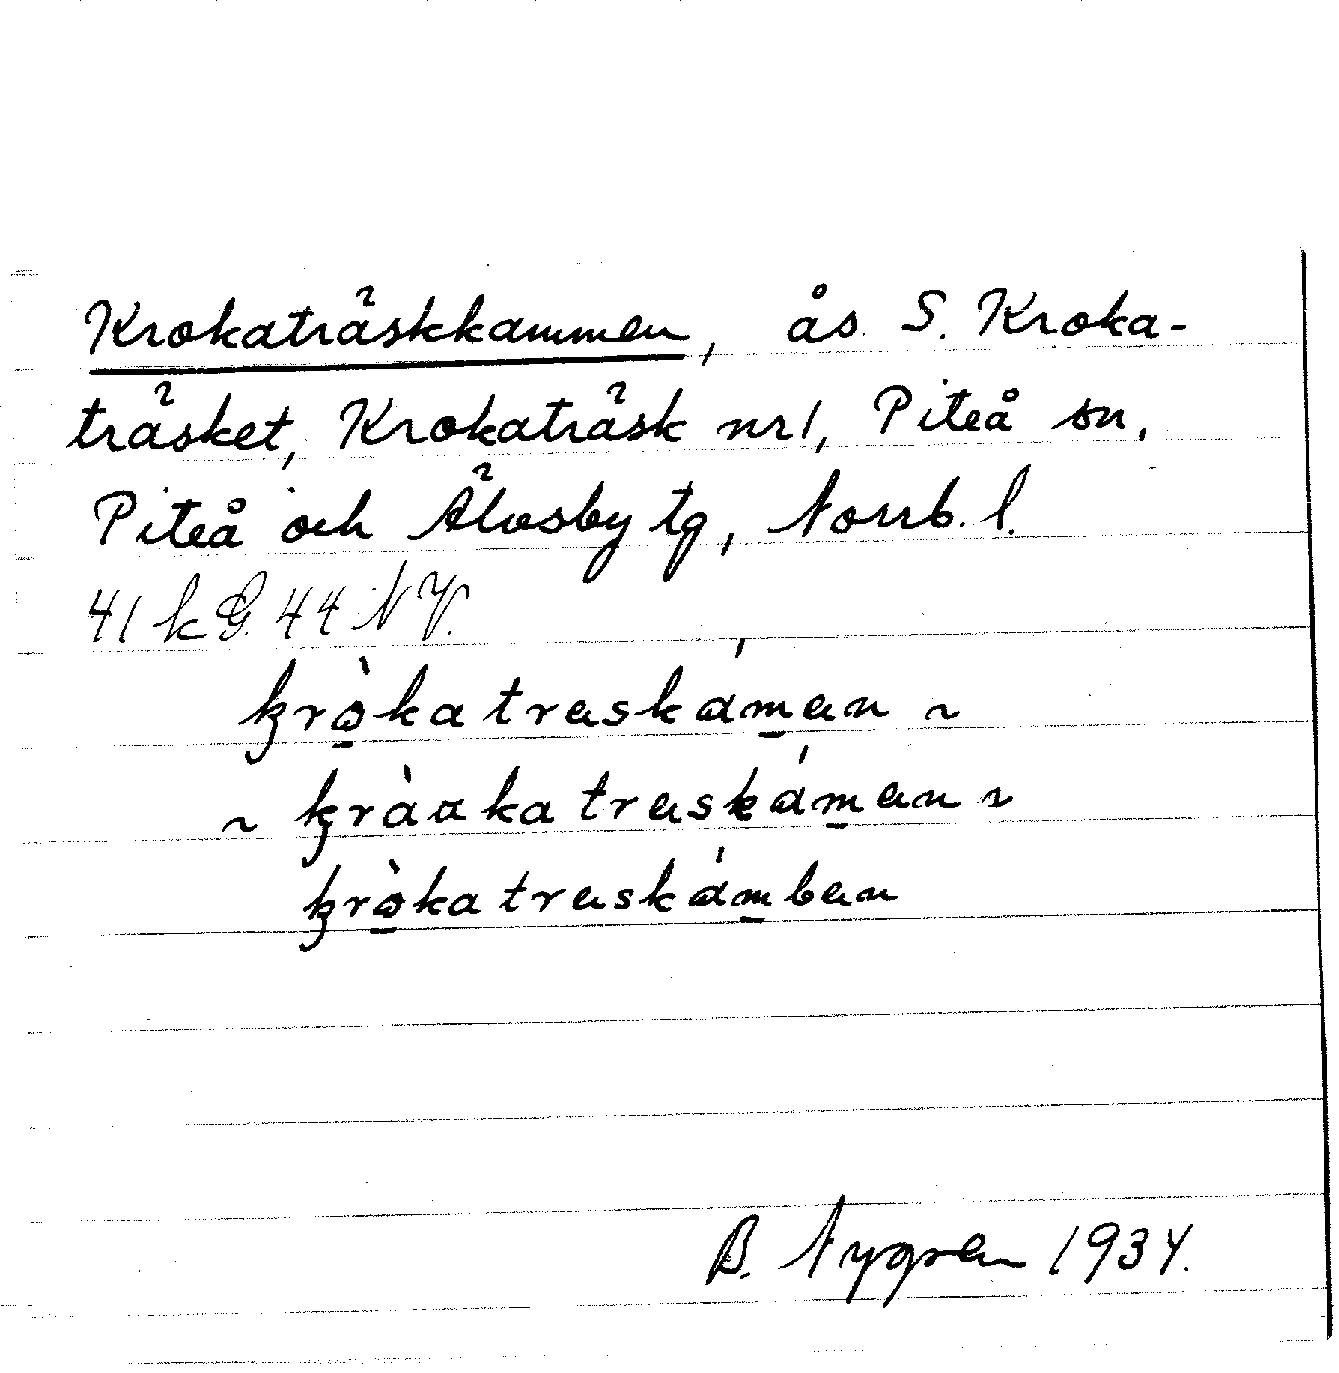 Krokaträskkammen, ås S. Kroka-
träsket, Krokaträsk nr 1, Piteå sn,
Piteå och Älvsby tg, Norrb. l.
41 k G. 44 NV.
kròkatræskámæn ~
~ kràakatræskámæn ~
kròkatræskámbæn
B. Nygren 1934.